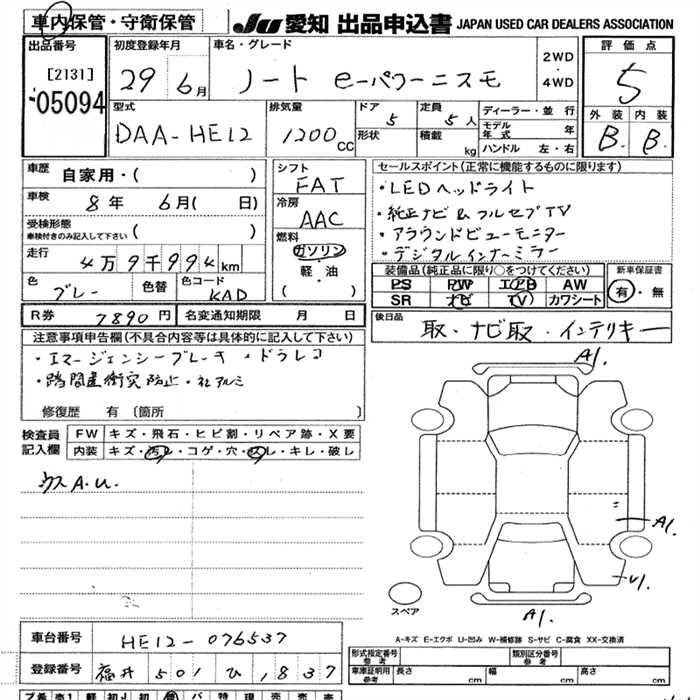 車内保管・守衛保管
JU 愛知 出品申込書 JAPAN USED CAR DEALERS ASSOCIATION
出品番号
[2131]
05094
初度登録年月
29 6月
車名・グレード
ノート e-パワーニスモ
2WD
・
4WD
評価点
5
外装 内装
B. B.
型式
DAA-HE12
排気量
1200 CC
ドア
5
形状
定員
5 人
積載
kg
ディーラー・並行
モデル年式 年
ハンドル 左・右
車歴
自家用・( )
車検
8年 6月( 日)
受検形態
車検付きのみ記入して下さい ( )
走行
4万9千994km
色
ブレー
色替
色コード
KAD
R券 7890円
名変通知期限 月 日
シフト
FAT
冷房
AAC
燃料
ガソリン
軽・油
( )
セールスポイント(正常に機能するものに限ります)
・LEDヘッドライト
・純正ナビ&フルセグTV
・アラウンドビューモニター
・デジタルインナーミラー
装備品(純正品に限り○をつけてください)
PS PW エアB AW
SR ナビ TV カワシート
新車保証書
有・無
後日品
取・ナビ取・インテリキー
注意事項申告欄(不具合内容等は具体的に記入して下さい)
・エマージェンシーブレーキ・ドラレコ
・踏間違衝突防止・社アルミ
修復歴 有〔箇所 〕
検査員
記入欄
FW キズ・飛石・ヒビ割・リペア跡・X要
内装 キズ・汚レ・コゲ・穴・スレ・キレ・破レ
ウスA.U.
A1.
A1.
U1.
A1.
スペア
A-キズ E-エクボ U-凹み W-補修跡 S-サビ C-腐食 XX-交換済
車台番号 HE12-076537
登録番号 福井 501 ひ 1837
形式指定番号
参考
類別区分番号
参考
車庫証明用
参考
長さ cm
幅 cm
高さ cm